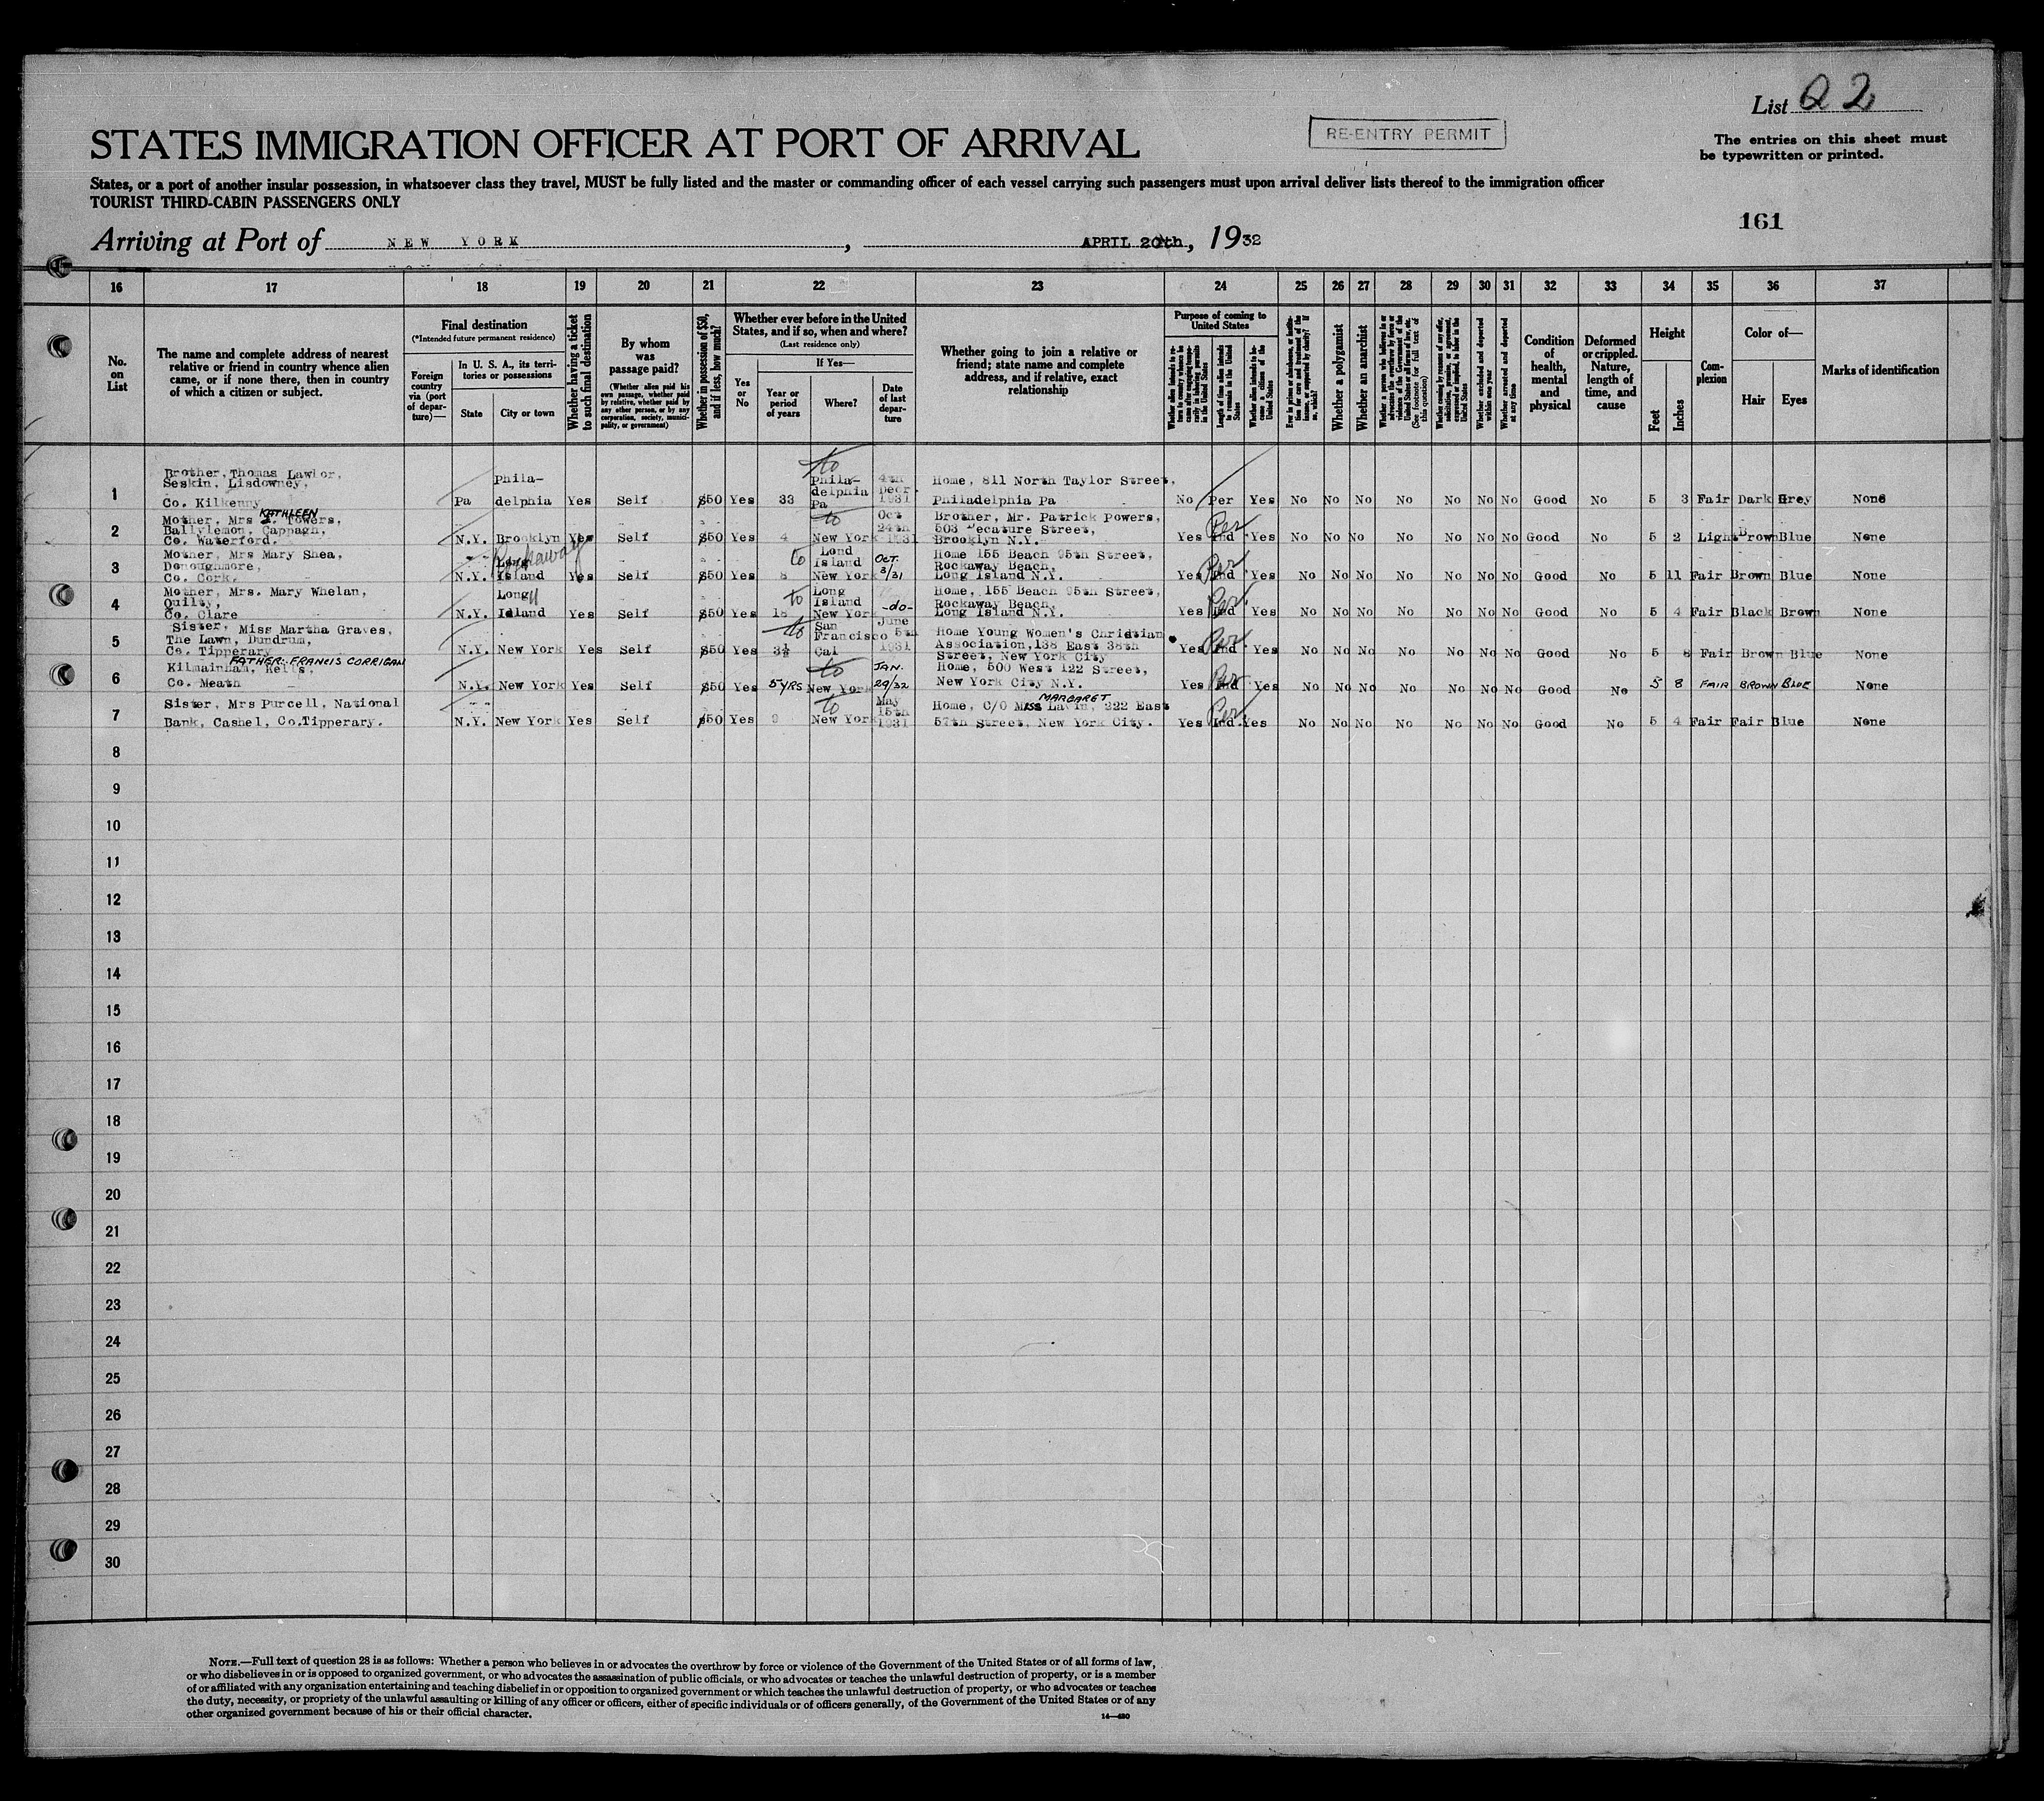 List Q 2
STATES IMMIGRATION OFFICER AT PORT OF ARRIVAL
RE-ENTRY PERMIT
The entries on this sheet must
be typewritten or printed.
States, or a port of another insular possession, in whatsoever class they travel, MUST be fully listed and the master or commanding officer of each vessel carrying such passengers must upon arrival deliver lists thereof to the immigration officer
TOURIST THIRD-CABIN PASSENGERS ONLY
161
Arriving at Port of NEW YORK, APRIL 20th, 1932
16 17 18 19 20 21 22 23 24 25 26 27 28 29 30 31 32 33 34 35 36 37
No. on List
The name and complete address of nearest
relative or friend in country whence alien
came, or if none there, then in country
of which a citizen or subject.
Final destination
(*Intended future permanent residence)
Foreign country via (port of departure)—
In U. S. A., its territories or possessions
State
City or town
Whether having a ticket to such final destination
By whom was passage paid?
(Whether alien paid his own passage, whether paid by relative, whether paid by any other person, or by any corporation, society, municipality, or government)
Whether in possession of $50, and if less, how much?
Whether ever before in the United
States, and if so, when and where?
(Last residence only)
Yes or No
If Yes—
Year or period of years
Where?
Date of last departure
Whether going to join a relative or
friend; state name and complete
address, and if relative, exact
relationship
Purpose of coming to United States
Whether alien intends to return to country whence he came after engaging temporarily in laboring pursuits in the United States
Length of time alien intends to remain in the United States
Whether alien intends to become a citizen of the United States
Ever in prison or almshouse, or institution for care and treatment of the insane, or supported by charity? If so, which?
Whether a polygamist
Whether an anarchist
Whether a person who believes in or advocates the overthrow by force or violence of the Government of the United States or all forms of law, etc. (See footnote for full text of this question)
Whether coming by reason of any offer, solicitation, promise, or agreement, expressed or implied, to labor in the United States
Whether excluded and deported within one year
Whether arrested and deported at any time
Condition of health, mental and physical
Deformed or crippled. Nature, length of time, and cause
Height
Feet
Inches
Complexion
Color of—
Hair
Eyes
Marks of identification
Brother, Thomas Lawlor,
Seskin, Lisdowney,
Co. Kilkenny
1 Pa Phila-delphia Yes Self $50 Yes 33 to Phila-delphia Pa 4th Decr. 1931 Home, 811 North Taylor Street, Philadelphia Pa No Per Yes No No No No No No No Good No 5 3 Fair Dark Grey None
Mother, Mrs KATHLEEN Towers,
Ballylemon, Cappagh,
Co. Waterford.
2 N.Y. Brooklyn Yes Self $50 Yes 4 to New York Oct 24th 1931 Brother, Mr. Patrick Powers, 503 Decature Street, Brooklyn N.Y. Yes Ind Per Yes No No No No No No No Good No 5 2 Light Brown Blue None
Mother, Mrs Mary Shea,
Donoughmore,
Co. Cork.
3 N.Y. Long Island Rockaway Yes Self $50 Yes 8 to Lond Island New York OCT. 3/31 Home 155 Beach 95th Street, Rockaway Beach, Long Island N.Y. Yes Ind Per Yes No No No No No No No Good No 5 11 Fair Brown Blue None
Mother, Mrs. Mary Whelan,
Quilty,
Co. Clare
4 N.Y. Long Island " Yes Self $50 Yes 18 to Long Island New York -do- Home, 155 Beach 95th Street, Rockaway Beach, Long Island N.Y. Yes Ind Per Yes No No No No No No No Good No 5 4 Fair Black Brown None
Sister, Miss Martha Graves,
The Lawn, Dundrum,
Co. Tipperary
5 N.Y. New York Yes Self $50 Yes 3½ to San Francisco Cal June 5th 1931 Home Young Women's Christian Association, 138 East 38th Street, New York City Yes Ind Per Yes No No No No No No No Good No 5 8 Fair Brown Blue None
FATHER: FRANCIS CORRIGAN
Kilmainham, Kells,
Co. Meath
6 N.Y. New York Yes Self $50 Yes 5 YRS to New York JAN. 29/32 Home, 500 West 122 Street, New York City N.Y. Yes Ind Per Yes No No No No No No No Good No 5 8 FAIR BROWN BLUE None
Sister, Mrs Purcell, National
Bank, Cashel, Co.Tipperary.
7 N.Y. New York Yes Self $50 Yes 9 to New York May 15th 1931 Home, C/O Miss MARGARET Lavin, 222 East 57th Street, New York City. Yes Ind. Per Yes No No No No No No No Good No 5 4 Fair Fair Blue None
8
9
10
11
12
13
14
15
16
17
18
19
20
21
22
23
24
25
26
27
28
29
30
NOTE.—Full text of question 28 is as follows: Whether a person who believes in or advocates the overthrow by force or violence of the Government of the United States or of all forms of law,
or who disbelieves in or is opposed to organized government, or who advocates the assassination of public officials, or who advocates or teaches the unlawful destruction of property, or is a member
of or affiliated with any organization entertaining and teaching disbelief in or opposition to organized government or which teaches the unlawful destruction of property, or who advocates or teaches
the duty, necessity, or propriety of the unlawful assaulting or killing of any officer or officers, either of specific individuals or of officers generally, of the Government of the United States or of any
other organized government because of his or their official character.
14—480